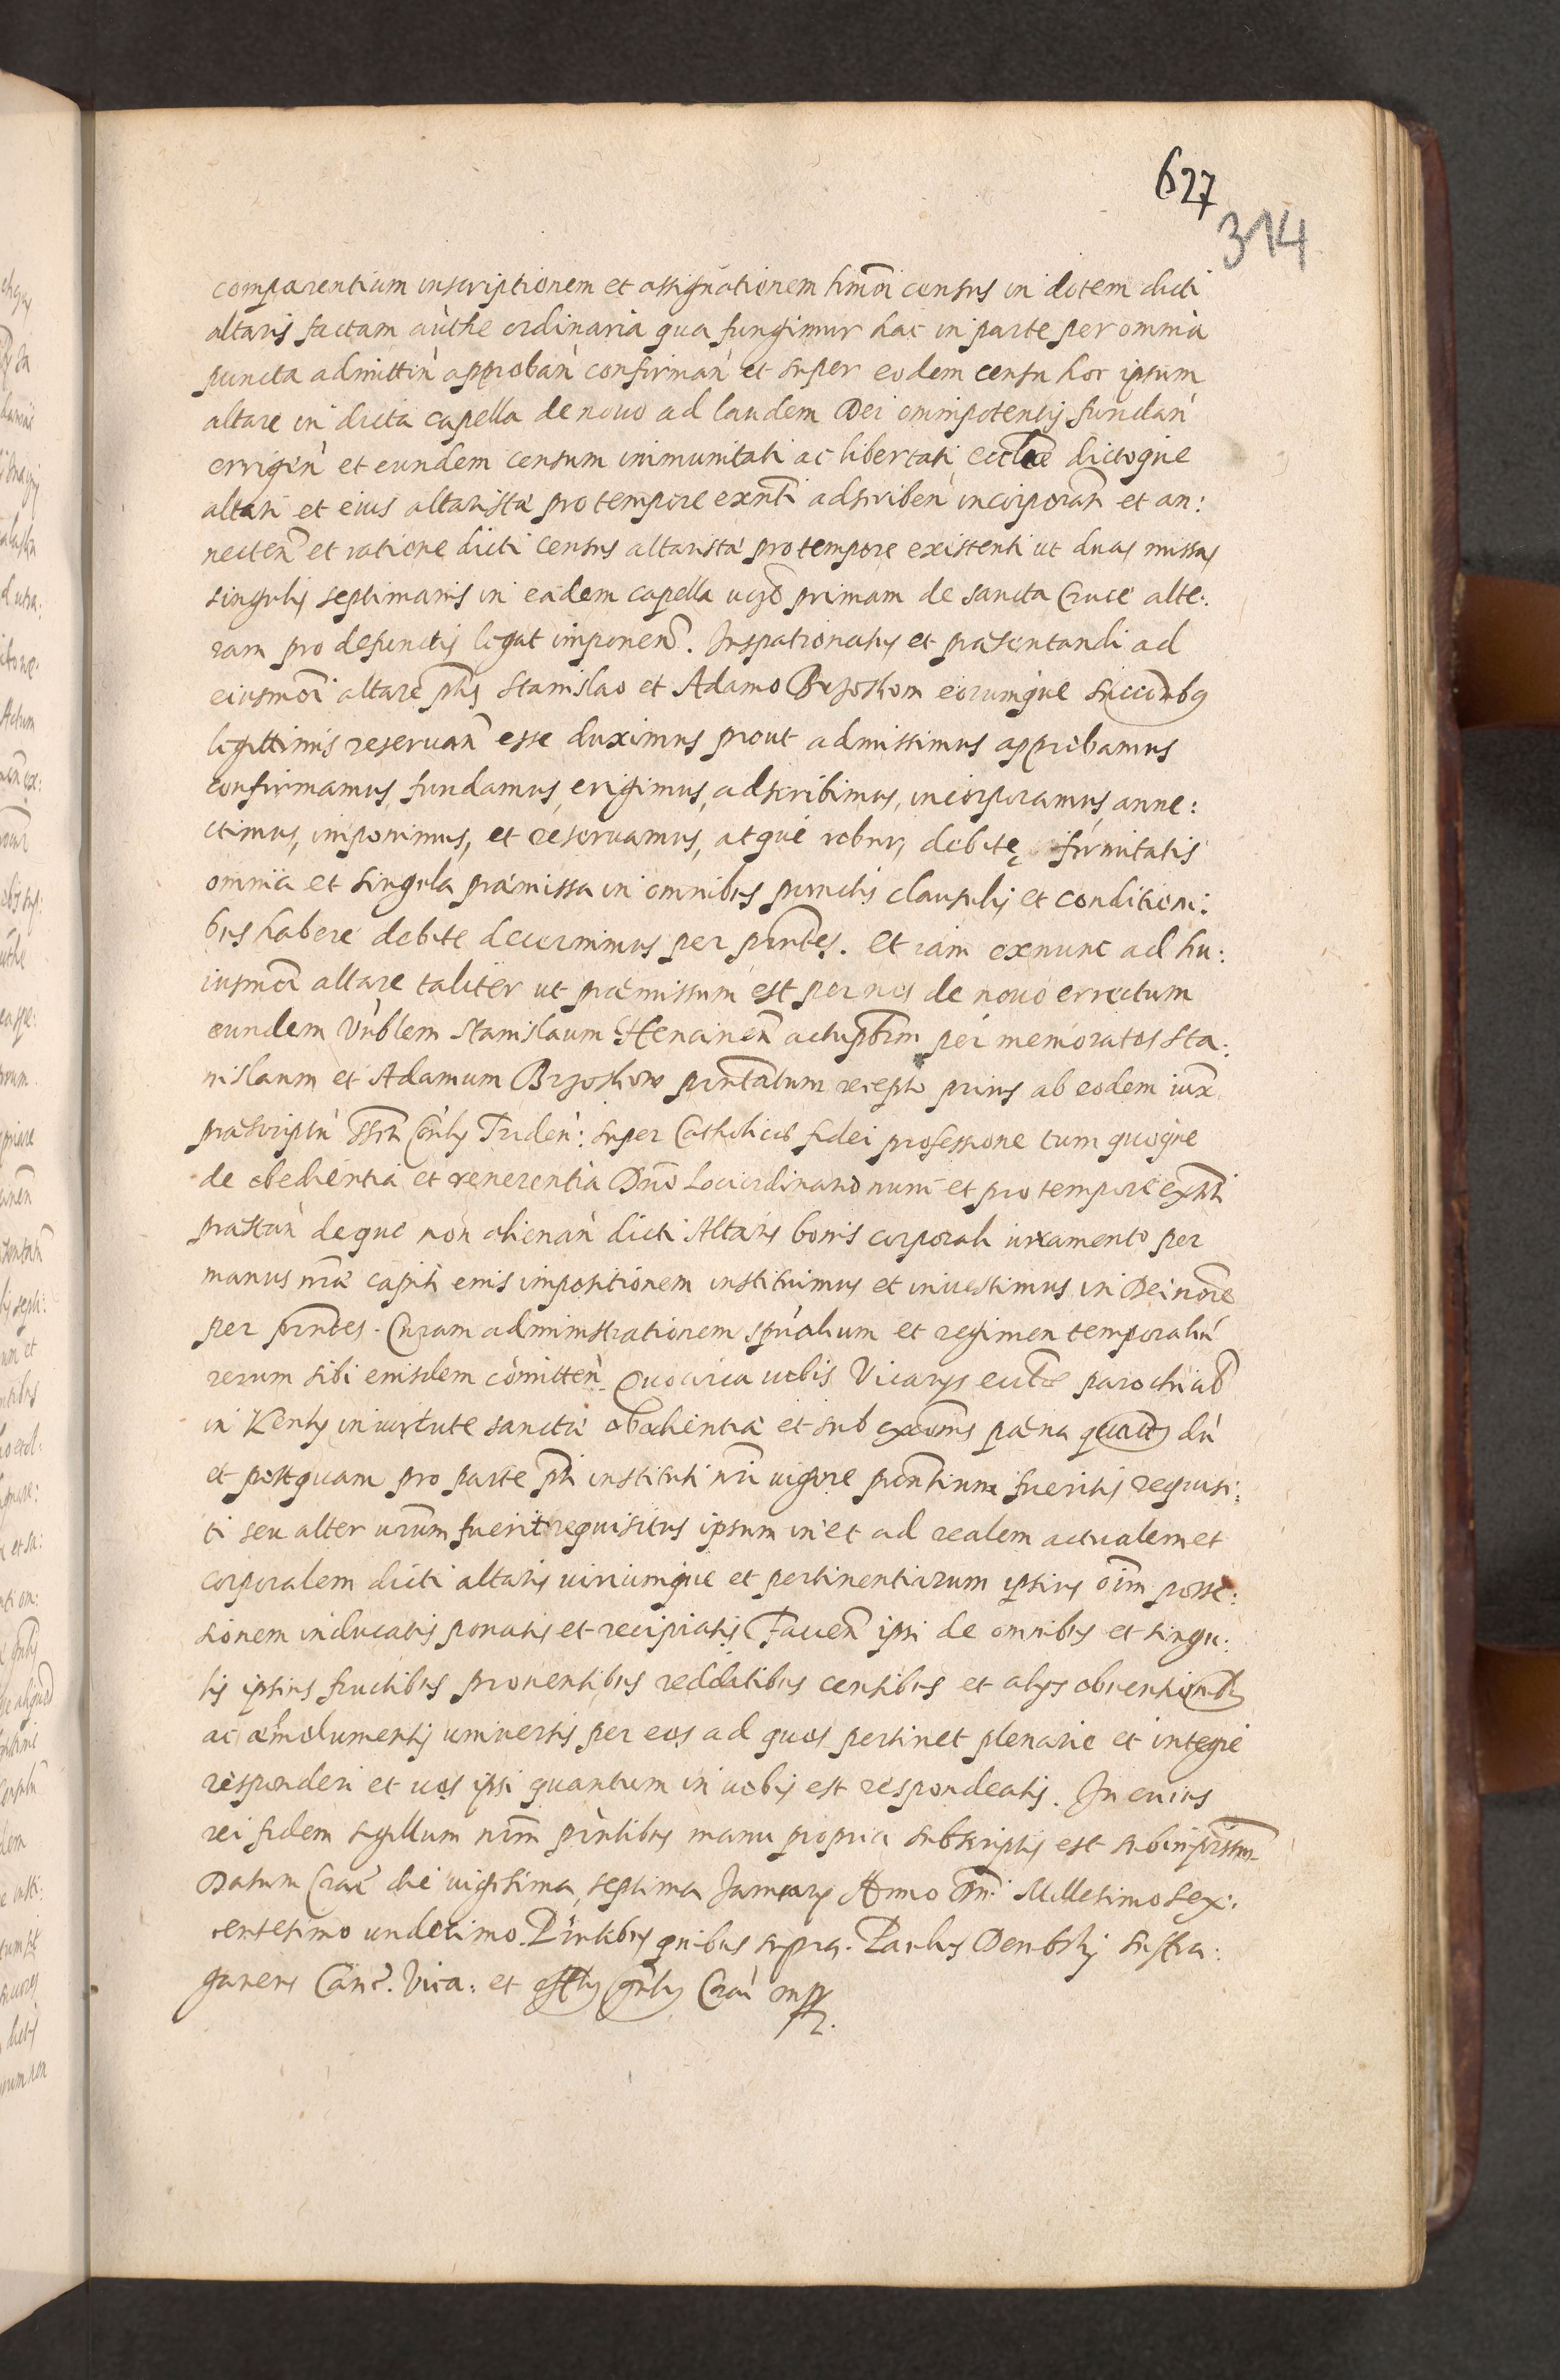 627
314
comparentium inscriptionem et assignationem hmōi census in dotem dicti
altaris factam authe ordinaria qua fungimur hac in parte per omnia
puncta admitten approban confirman et super eodem censu hoc ipsum
altare in dicta capella de novo ad laudem Dei omnipotentis fundan
errigen et eundem censum inimunitati ac libertati ecclæ dictoque
altari et eius altaristæ pro tempore exnti adscriben incorporan et an:
necten et ratione dicti census altaristæ pro tempore existenti ut duas missas
singulis septimanis in eadem capella uczt primam de sancta Cruce alte:
ram pro defunctis legat imponen. Juspatronatus et præsentandi ad
eiusmōi altare ptis Stanislao et Adamo Brzoskom eorumque succrībg
legittimis reservan esse duximus prout admissimus approbamus
confirmamus, fundamus, erigimus, adscribimus, incorporamus, anne:
ctimus, imponimus, et reservamus, atque robur, debitę firmitatis
omnia et singula præmissa in omnibus punctis clausulis et conditioni:
bus habere debite decernimus per pnntes. Et iam exnunc ad hu:
iusmōi altare taliter ut præmissum est per nos de novo errectum
eundem Vnblem Stanislaum actuptrm per memoratos Sta:
nislaum et Adamum Brzoskow pnntatum recepto prius ab eodem iux
præscriptn Ssti Conly Triden: super Catholicæ fidei professione tum quoque
de obedientia et reverentia Dno Lociordinario nunc et pro tempore exnti
præstan deque non alienan dicti Altaris bonis corporali iuramento per
manus nræ capiti eius impositionem instituimus et investimus in Dei noīe
per pnntes. Curam administrationem spualium et regimen temporaliu
rerum sibi eiusdem comitten. Quocirca vobis Vicarijs ecclæ parochial
in Kenty in virtute sanctæ obedientiæ et sub excōis pæna quatt du
et postquam pro parte pti instituti nri vigore pnntium fueritis requisi:
ti seu alter vrum fuerit requisitus ipsum in et ad realem actualem et
corporalem dicti altaris iuriumque et pertinentiarum ipsius oīm posse:
sionem inducatis ponatis et recipiatis Facien ipsi de omnibus et singu:
lis ipsius fructibus proventibus redditibus censibus et alijs obventionb
ac æmolumentis universis per eos ad quos pertinet plenarie et integre
responderi et vos ipsi quantum in vobis est respondeatis. In cuius
rei fidem sigillum nrm pnntibus manu propria subscriptis est subimpressum
Datum Crac die vigesima septima January Anno Dni Millesimo sex:
centesimo undecimo. Pnntibus quibus supra. Paulus Dembskj Suffra:
ganeus Canc. Vica: et offlis gnlis Crac mpp.